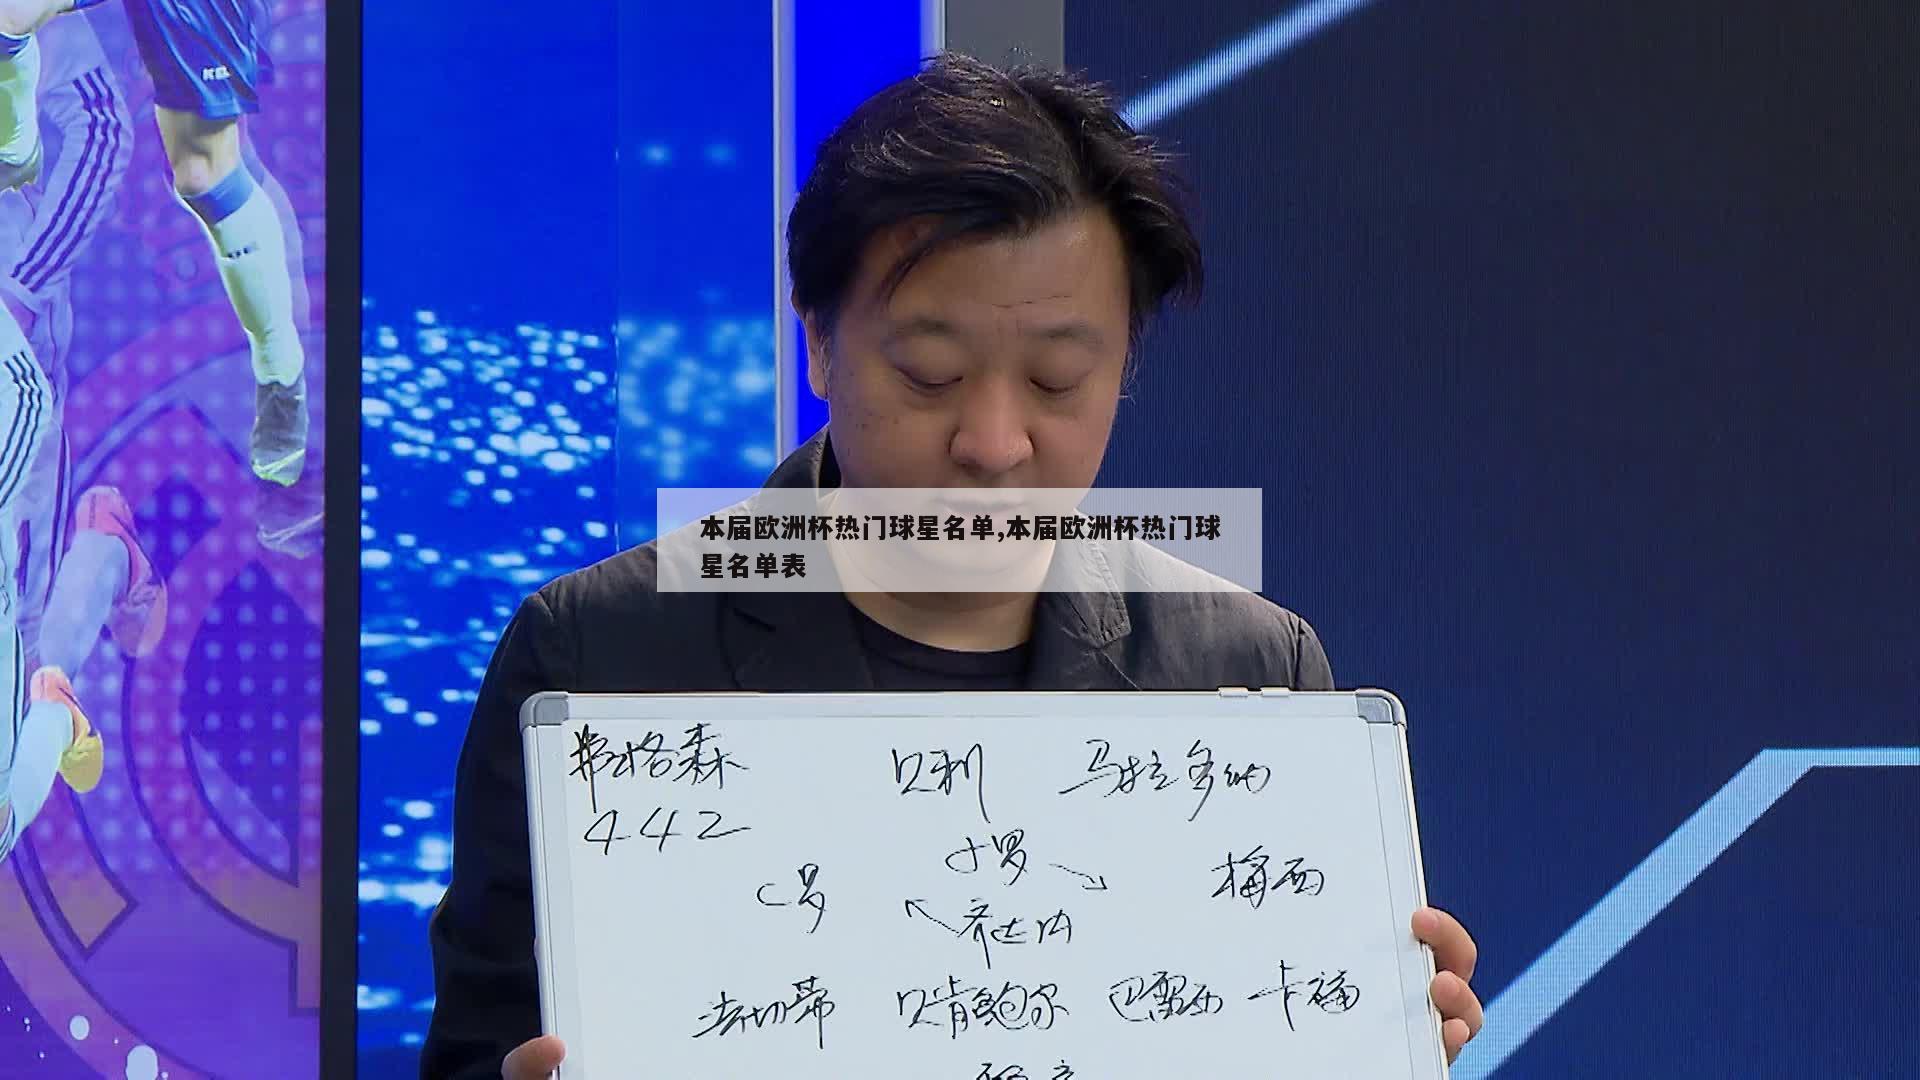 本届欧洲杯热门球星名单,本届欧洲杯热门球
星名单表
弗格森 贝利 马拉多纳
442
C罗 小罗 梅西
齐达内
法切蒂 贝肯鲍尔 巴雷西 卡福